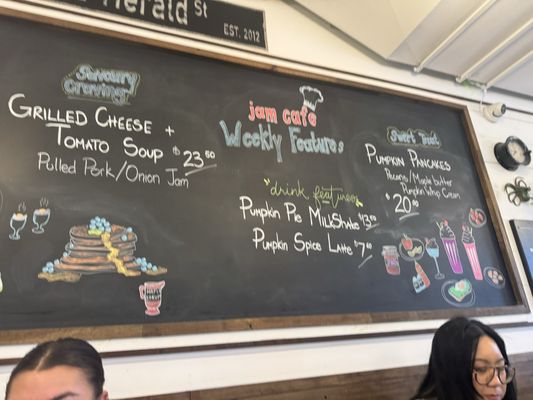 Herald St
EST. 2012
Savoury
Cravings
GRILLED CHEESE +
TOMATO SOUP $23.50
Pulled Pork/Onion Jam
jam cafe
Weekly Features
drink features
PUMPKIN PIE MILKSHAKE
PUMPKIN SPICE LATTE $7.50
Sweet Treat
PUMPKIN PANCAKES
Pecans/Maple butter
Pumpkin Whip Cream
$20.00